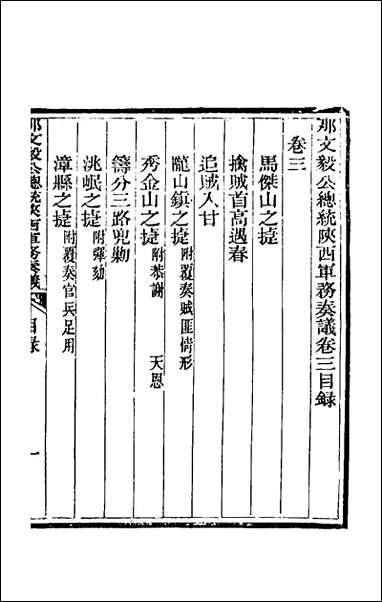 那文毅公總統陝西軍務奏議卷三目録
卷三
馬傑山之捷
擒賊首高遇春
追賊入甘
隴山鎮之捷 附覆奏賊匪情形
秀金山之捷 附恭謝 天恩
籌分三路兜勦
洮岷之捷 附彈劾
漳縣之捷 附覆奏官兵足用
那文毅公總統陝西軍務奏議 目録 一